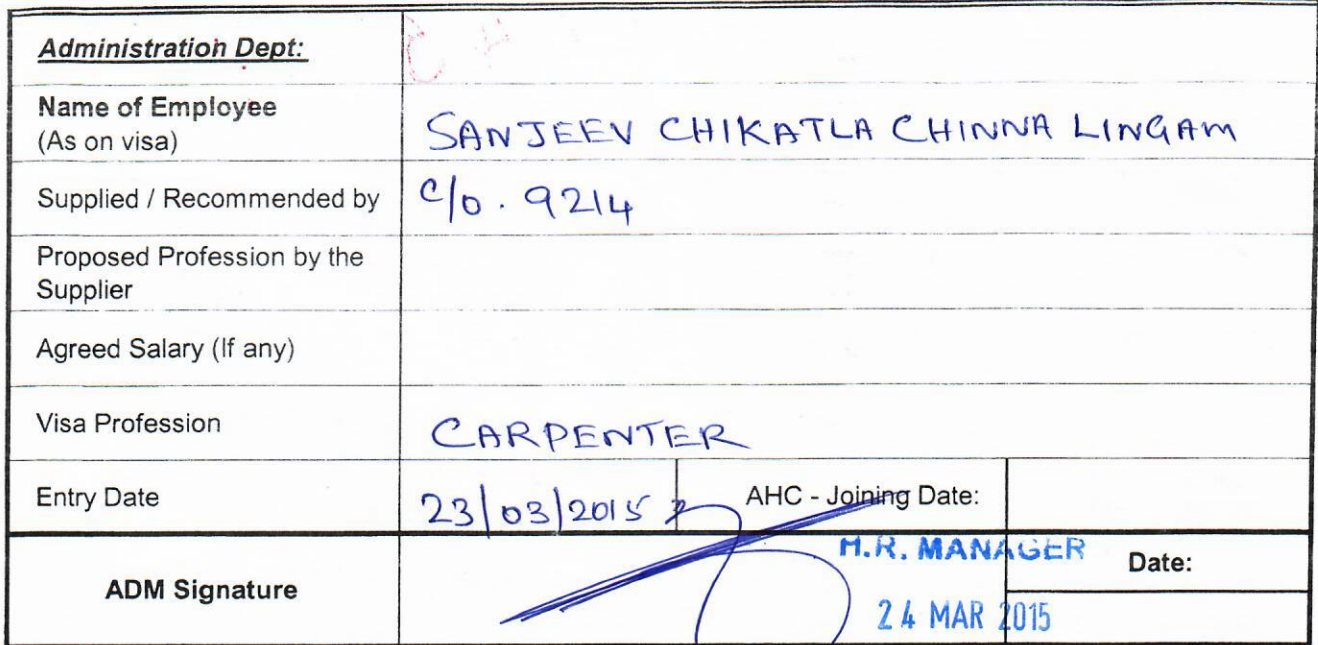 Administration Dept:
Name of Employee
(As on visa)
SANJEEV CHIKATLA CHINNA LINGAM
Supplied / Recommended by
C/o. 9214
Proposed Profession by the
Supplier
Agreed Salary (If any)
Visa Profession
CARPENTER
Entry Date
23/03/2015
AHC - Joining Date:
ADM Signature
H.R. MANAGER
24 MAR 2015
Date: